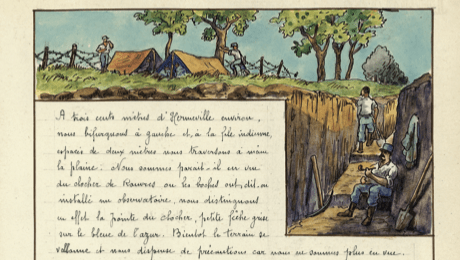 A trois cents mètres d'Hermeville environ,
nous bifurquons à gauche et, à la file indienne,
espacés de deux mètres nous traversons à même
la plaine. Nous sommes paraît-il en vue
du clocher de où les boches ont, dit-on
installé un observatoire, nous distinguons
en effet la pointe du clocher, petite flèche grise
sur le bleue de l'azur. Bientôt le terrain se
vallonne et nous dispense de précautions car nous ne sommes plus en vue.